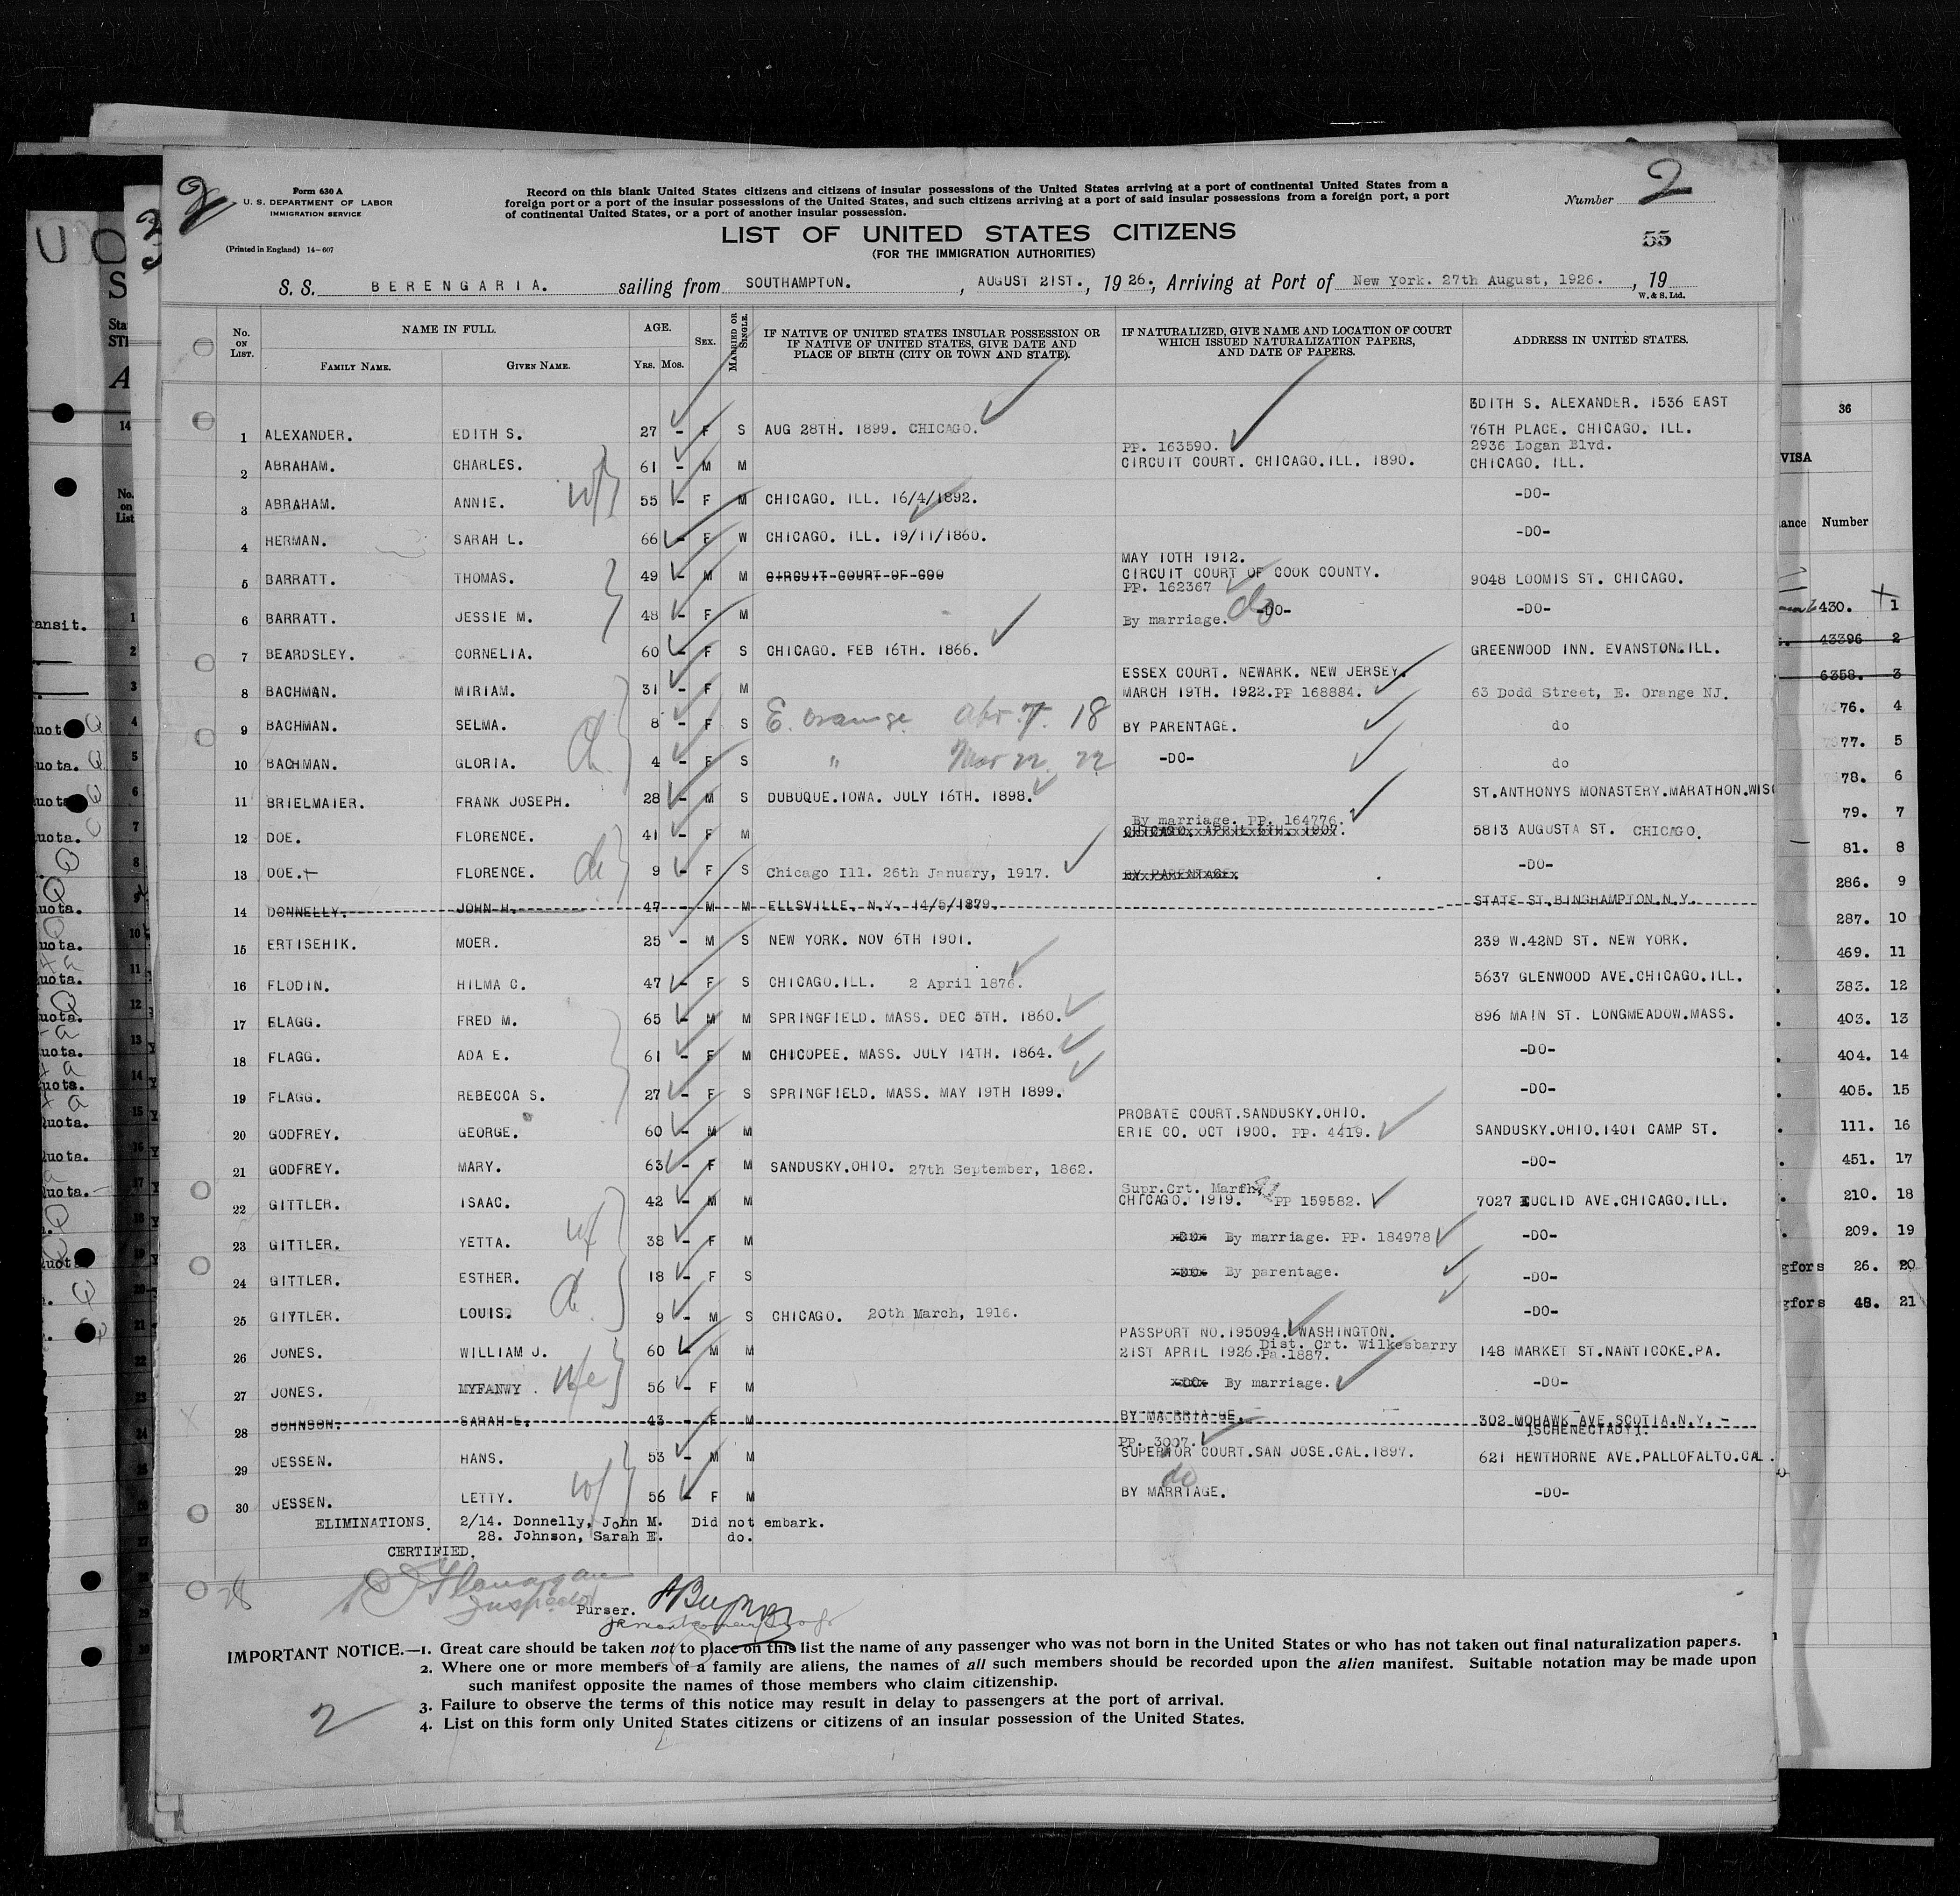 2
Form 630 A
U. S. DEPARTMENT OF LABOR
IMMIGRATION SERVICE
(Printed in England) 14-607
Record on this blank United States citizens and citizens of insular possessions of the United States arriving at a port of continental United States from a
foreign port or a port of the insular possessions of the United States, and such citizens arriving at a port of said insular possessions from a foreign port, a port
of continental United States, or a port of another insular possession.
Number 2
55
LIST OF UNITED STATES CITIZENS
(FOR THE IMMIGRATION AUTHORITIES)
S. S. BERENGARIA. sailing from SOUTHAMPTON. , AUGUST 21ST., 1926., Arriving at Port of New York. 27th August, 1926. , 19
W. & S. Ltd.
No. ON LIST. NAME IN FULL. FAMILY NAME. GIVEN NAME. AGE. YRS. MOS. SEX. MARRIED OR SINGLE. IF NATIVE OF UNITED STATES INSULAR POSSESSION OR IF NATIVE OF UNITED STATES, GIVE DATE AND PLACE OF BIRTH (CITY OR TOWN AND STATE). IF NATURALIZED, GIVE NAME AND LOCATION OF COURT WHICH ISSUED NATURALIZATION PAPERS, AND DATE OF PAPERS. ADDRESS IN UNITED STATES.
EDITH S. ALEXANDER. 1536 EAST
1 ALEXANDER. EDITH S. 27 - F S AUG 28TH. 1899. CHICAGO. 76TH PLACE. CHICAGO. ILL.
PP. 163590. 2936 Logan Blvd.
2 ABRAHAM. CHARLES. 61 - M M CIRCUIT COURT. CHICAGO.ILL. 1890. CHICAGO. ILL.
3 ABRAHAM. ANNIE. wf 55 - F M CHICAGO. ILL. 16/4/1892. -DO-
4 HERMAN. SARAH L. 66 - F W CHICAGO. ILL. 19/11/1860. -DO-
MAY 10TH 1912.
5 BARRATT. THOMAS. 49 - M M CIRCUIT COURT OF COO CIRCUIT COURT OF COOK COUNTY. 9048 LOOMIS ST. CHICAGO.
PP. 162367
6 BARRATT. JESSIE M. 48 - F M By marriage. do -DO- -DO-
7 BEARDSLEY. CORNELIA. 60 - F S CHICAGO. FEB 16TH. 1866. GREENWOOD INN. EVANSTON.ILL.
ESSEX COURT. NEWARK. NEW JERSEY.
8 BACHMAN. MIRIAM. 31 - F M MARCH 19TH. 1922.PP 168884. 63 Dodd Street, E. Orange NJ.
9 BACHMAN. SELMA. 8 - F S E. Orange. Apr. 7. 18 BY PARENTAGE. do
10 BACHMAN. GLORIA. ch. 4 - F S " Mar 22. 22 -DO- do
11 BRIELMAIER. FRANK JOSEPH. 28 - M S DUBUQUE.IOWA. JULY 16TH. 1898. ST.ANTHONYS MONASTERY.MARATHON.WISC
By marriage. PP. 164776.
12 DOE. FLORENCE. 41 - F M CHICAGO. APRIL 6TH. 1907. 5813 AUGUSTA ST. CHICAGO.
13 DOE. FLORENCE. ch 9 - F S Chicago Ill. 26th January, 1917. BY PARENTAGE. -DO-
14 DONNELLY. JOHN H. 47 - M M ELLSVILLE. N.Y. 14/5/1879. STATE ST.BINGHAMPTON.N.Y.
15 ERTISEHIK. MOER. 25 - M S NEW YORK. NOV 6TH 1901. 239 W.42ND ST. NEW YORK.
16 FLODIN. HILMA C. 47 - F S CHICAGO.ILL. 2 April 1876. 5637 GLENWOOD AVE.CHICAGO.ILL.
17 FLAGG. FRED M. 65 - M M SPRINGFIELD. MASS. DEC 5TH. 1860. 896 MAIN ST. LONGMEADOW.MASS.
18 FLAGG. ADA E. 61 - F M CHICOPEE. MASS. JULY 14TH. 1864. -DO-
19 FLAGG. REBECCA S. 27 - F S SPRINGFIELD. MASS. MAY 19TH 1899. -DO-
PROBATE COURT.SANDUSKY.OHIO.
20 GODFREY. GEORGE. 60 - M M ERIE CO. OCT 1900. PP. 4419. SANDUSKY.OHIO.1401 CAMP ST.
21 GODFREY. MARY. 63 - F M SANDUSKY.OHIO. 27th September, 1862. -DO-
Supr.Crt. March,
22 GITTLER. ISAAC. 42 - M M CHICAGO. 1919. PP 159582. 7027 EUCLID AVE.CHICAGO.ILL.
23 GITTLER. YETTA. wf 38 - F M By marriage. PP. 184978 -DO-
24 GITTLER. ESTHER. 18 - F S By parentage. -DO-
25 GITTLER. LOUIS. ch. 9 - M S CHICAGO. 20th March, 1916. -DO-
PASSPORT NO.195094. WASHINGTON.
Dist. Crt. Wilkesbarry
26 JONES. WILLIAM J. 60 - M M 21ST APRIL 1926. Pa.1887. 148 MARKET ST.NANTICOKE.PA.
27 JONES. MYFANWY. 56 - F M By marriage. -DO-
28 JOHNSON. SARAH E. 43 - F M BY MARRIAGE. 302 MOHAWK AVE.SCOTIA.N.Y.
(SCHENECTADY).
PP. 3007.
29 JESSEN. HANS. 53 - M M SUPERIOR COURT.SAN JOSE.CAL.1897. 621 HEWTHORNE AVE.PALLOFALTO.CAL.
do
30 JESSEN. LETTY. wf 56 - F M BY MARRIAGE. -DO-
ELIMINATIONS. 2/14. Donnelly, John M. Did not embark.
28. Johnson, Sarah E. do.
CERTIFIED.
Inspector
Purser.
IMPORTANT NOTICE.—1. Great care should be taken not to place on this list the name of any passenger who was not born in the United States or who has not taken out final naturalization papers.
2. Where one or more members of a family are aliens, the names of all such members should be recorded upon the alien manifest. Suitable notation may be made upon
such manifest opposite the names of those members who claim citizenship.
3. Failure to observe the terms of this notice may result in delay to passengers at the port of arrival.
4. List on this form only United States citizens or citizens of an insular possession of the United States.
2
36
VISA
Number
430. 1
43396 2
6358. 3
76. 4
77. 5
78. 6
79. 7
81. 8
286. 9
287. 10
469. 11
383. 12
403. 13
404. 14
405. 15
111. 16
451. 17
210. 18
209. 19
gfors 26. 20
gfors 48. 21